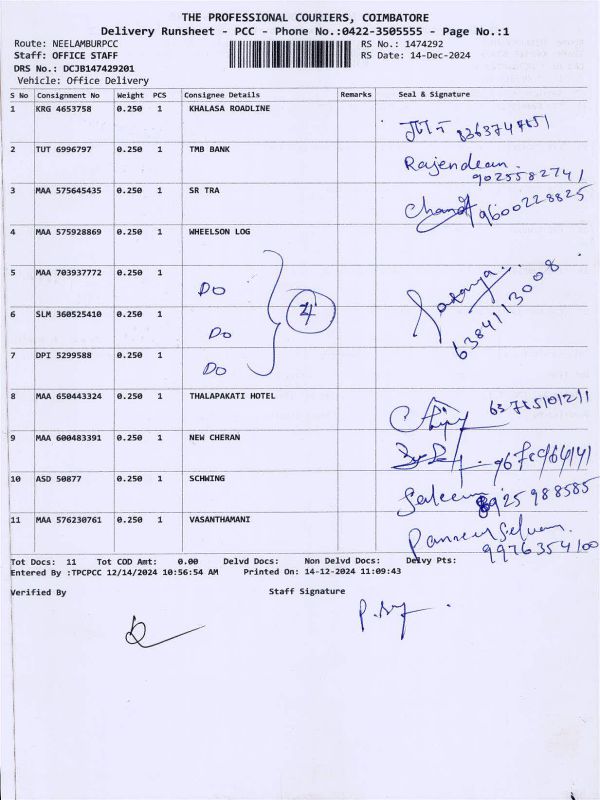 THE PROFESSIONAL COURIERS, COIMBATORE
Delivery Runsheet - PCC - Phone No.:0422-3505555 - Page No.:1
Route: NEELAMBURPCC RS No.: 1474292
Staff: OFFICE STAFF RS Date: 14-Dec-2024
DRS No.: DCJB147429201
Vehicle: Office Delivery
S No Consignment No Weight PCS Consignee Details Remarks Seal & Signature
1 KRG 4653758 0.250 1 KHALASA ROADLINE
2 TUT 6996797 0.250 1 TMB BANK Rajendran
9025582741
3 MAA 575645435 0.250 1 SR TRA 9600228825
4 MAA 575928869 0.250 1 WHEELSON LOG
5 MAA 703937772 0.250 1 DO
4
6 SLM 360525410 0.250 1 DO 6384113008
7 DPI 5299588 0.250 1 DO
8 MAA 650443324 0.250 1 THALAPAKATI HOTEL
9 MAA 600483391 0.250 1 NEW CHERAN
10 ASD 50877 0.250 1 SCHWING Saleem 8925988585
11 MAA 576230761 0.250 1 VASANTHAMANI Panneer Selvam
9976354100
Tot Docs: 11 Tot COD Amt: 0.00 Delvd Docs: Non Delvd Docs: Delvy Pts:
Entered By :TPCPCC 12/14/2024 10:56:54 AM Printed On: 14-12-2024 11:09:43
Verified By Staff Signature